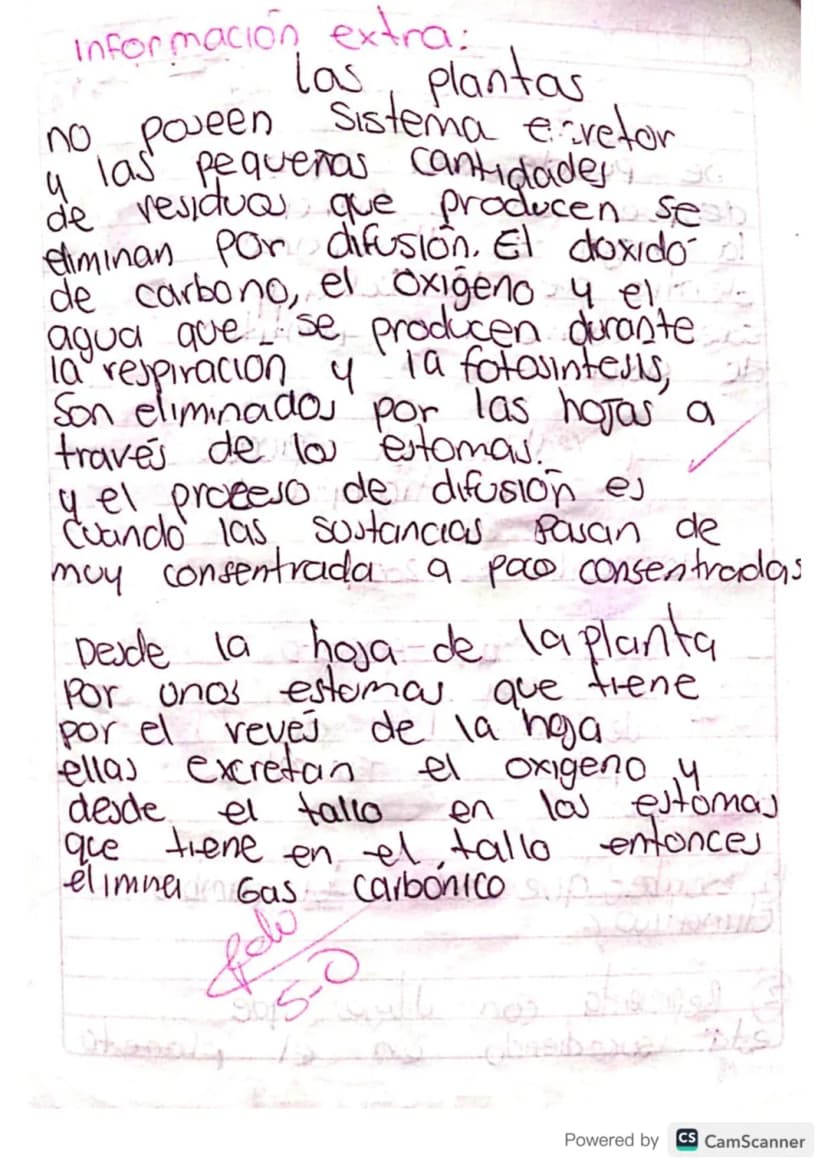 Información extra:
las plantas
no poseen sistema excretor
y las pequeñas cantidades
de residuos que producen se
eliminan por difusión. El doxido
de carbono, el oxigeno y el
agua que se producen durante
la respiracion y la fotosintesis,
Son eliminados por las hojas a
través de los estomas.
y el proceso de difusión es
Cuando las sustancias pasan de
muy consentrada a poco consentradas
Desde la hoja de la planta
por unos estomas que tiene
por el revés de la hoja
ellas excretan el oxigeno y
desde el tallo en los estomas
que tiene en el tallo entonces
elimina Gas carbónico
5-0
Powered by CS CamScanner